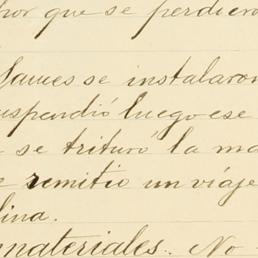 por que se perdieron
James se instalaron
suspendió luego ese
se trituró la ma
remitio un viaje
lina.
materiales. No